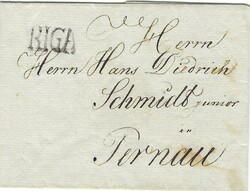 RIGA
Herrn
Herrn Hans Diedrich
Schmidt junior
Pernau